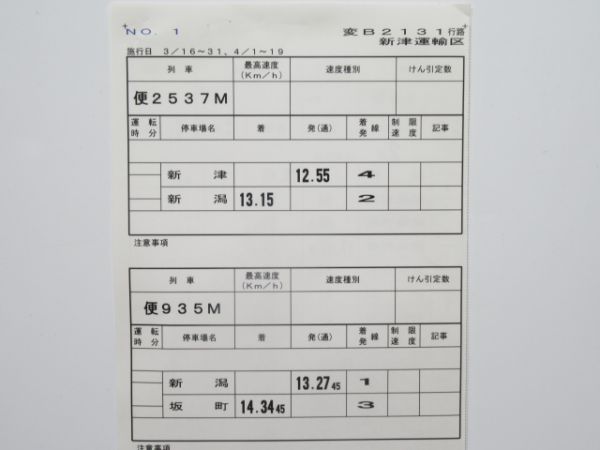 NO. 1 変B2131行路
新津運輸区
施行日 3/16~31, 4/1~19
列車 最高速度(Km/h) 速度種別 けん引定数
便2537M
運転時分 停車場名 着 発(通) 着発線 制限速度 記事
新津 12.55 4
新潟 13.15 2
注意事項
列車 最高速度(Km/h) 速度種別 けん引定数
便935M
運転時分 停車場名 着 発(通) 着発線 制限速度 記事
新潟 13.27 45 1
坂町 14.34 45 3
注意事項